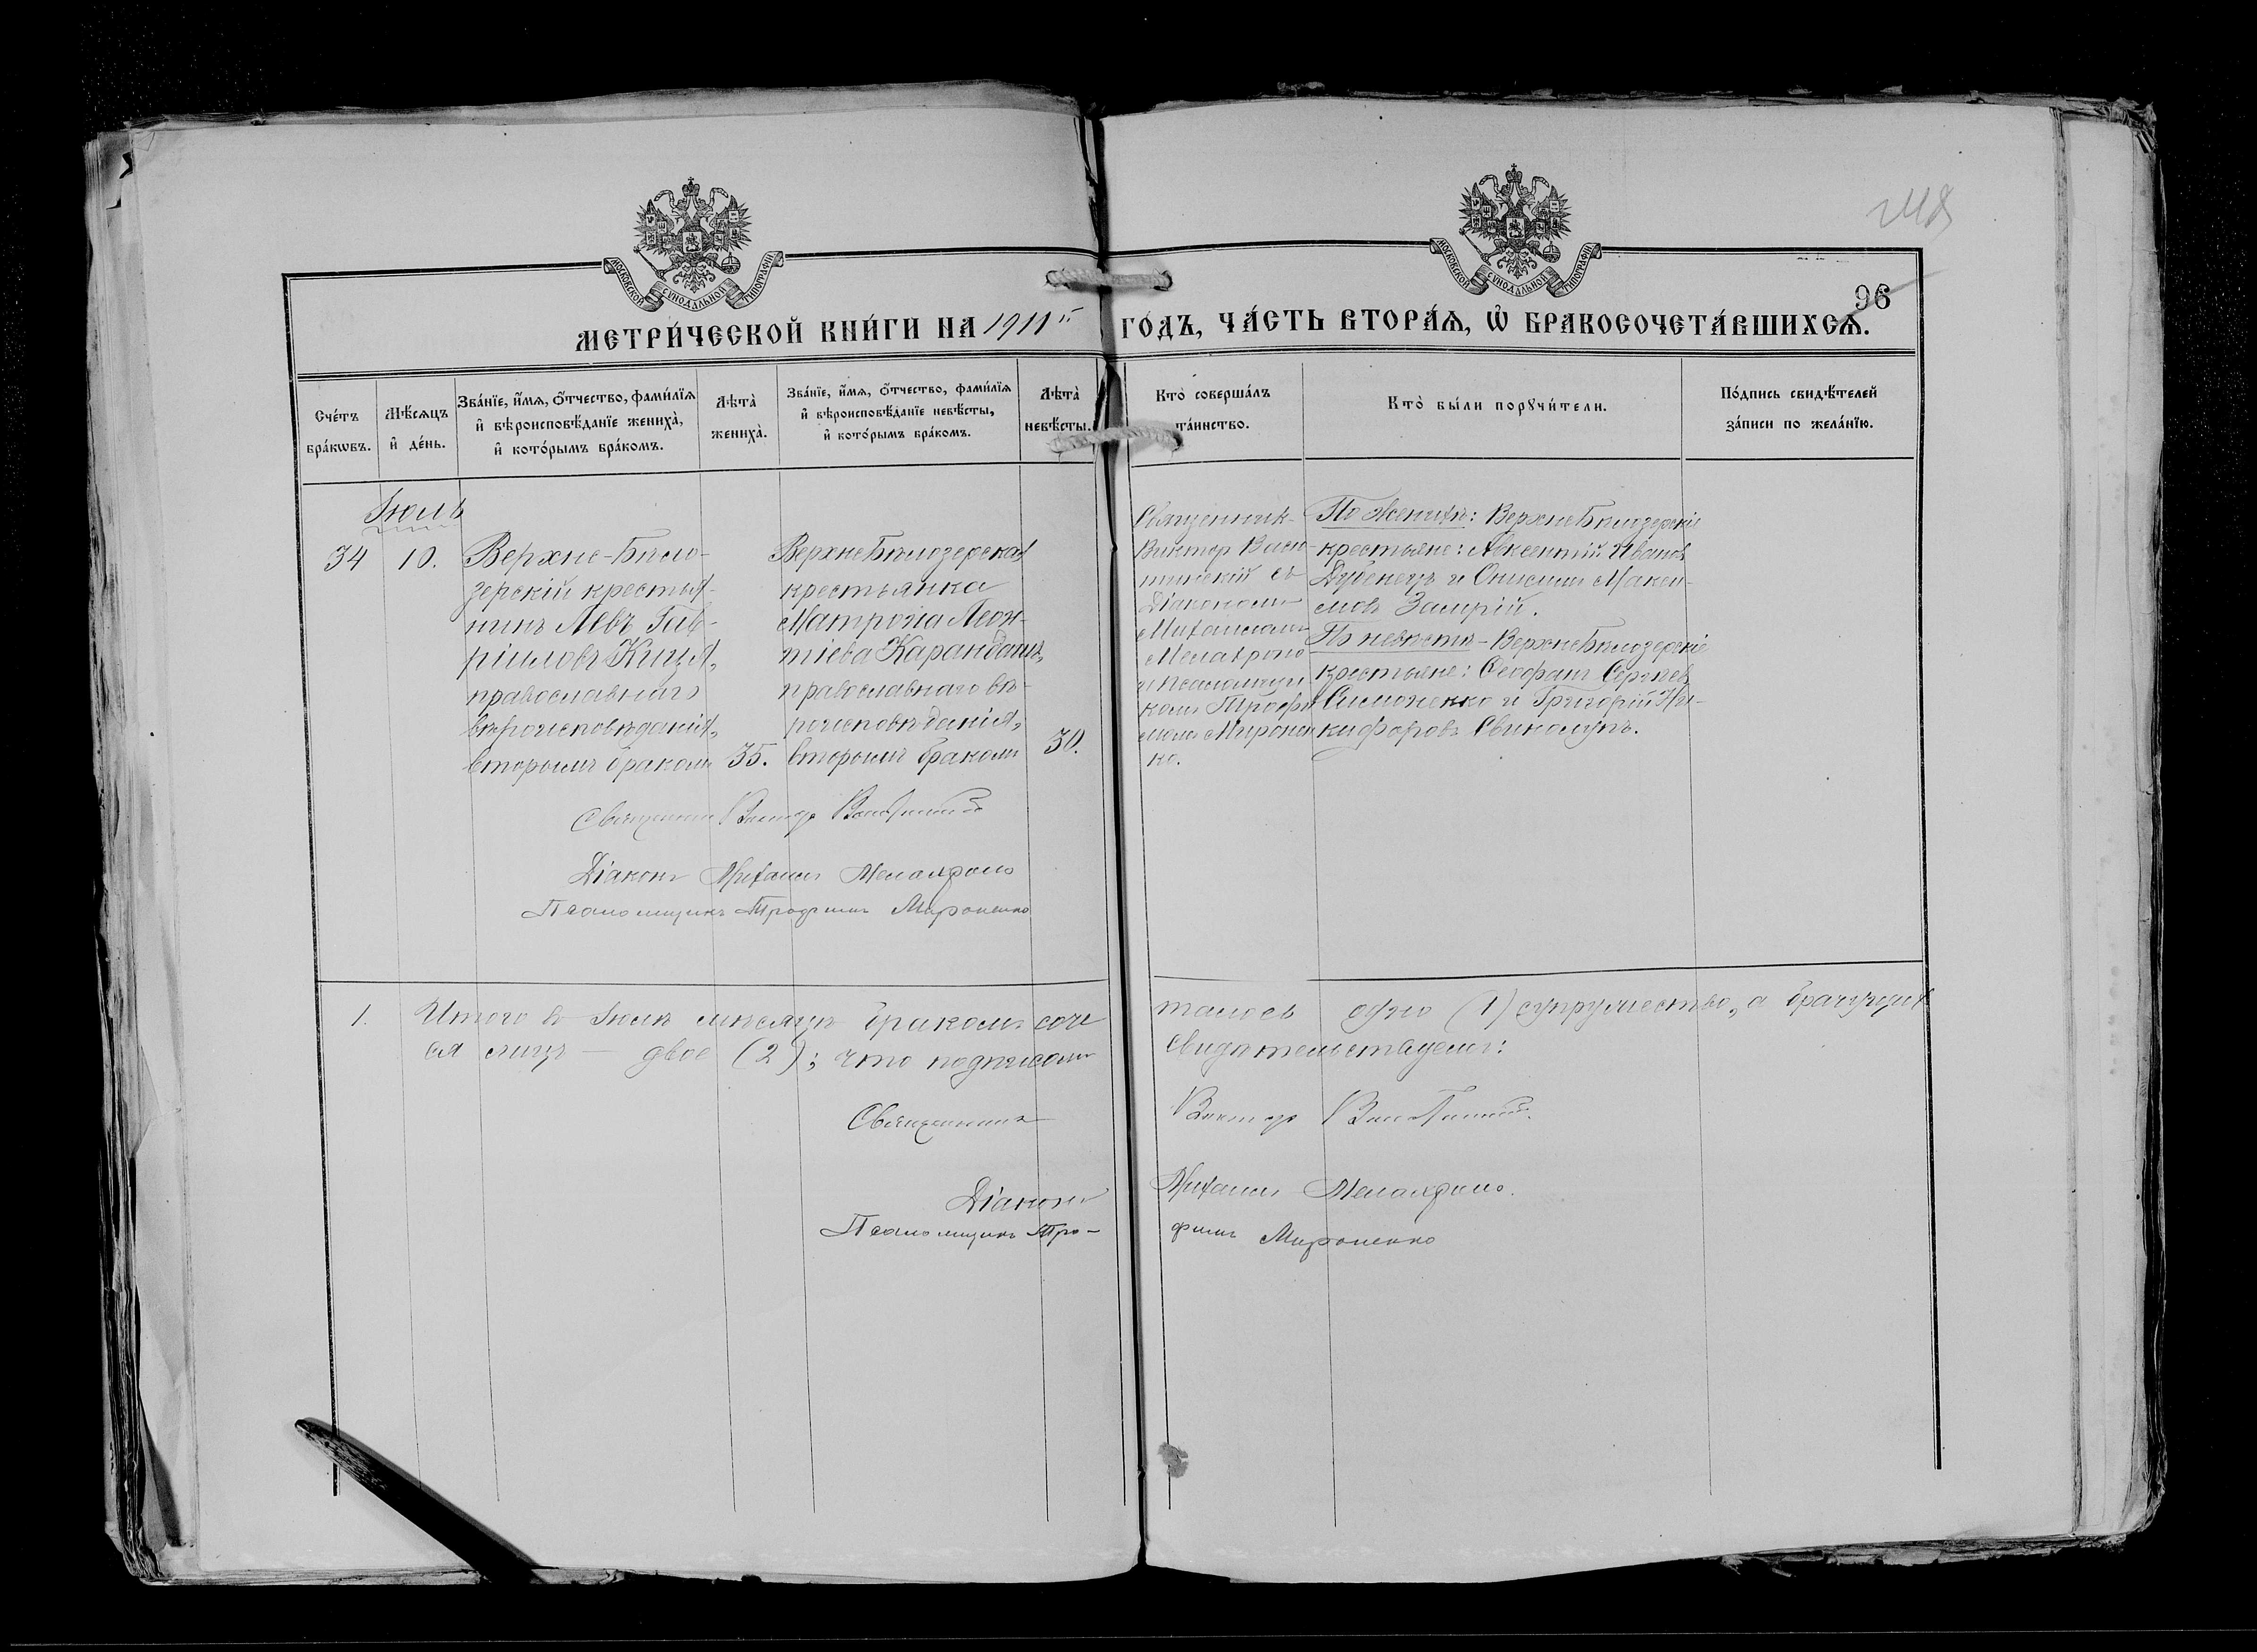 МОСКОВСКОЙ СѴНОДАЛЬНОЙ ТИПОГРАФІИ
МОСКОВСКОЙ СѴНОДАЛЬНОЙ ТИПОГРАФІИ
96
МЕТРИ́ЧЕСКОЙ КНИ́ГИ НА 1911й ГО́ДЪ, ЧА́СТЬ ВТОРА́Ѧ, Ѽ БРАКОСОЧЕТА́ВШИХСѦ.
Сче́тъ бра́кѡвъ.
Мѣ́сѧцъ и҆ де́нь.
Зва́нїе, и҆́мѧ, ѻ҆́тчество, фами́лїѧ
и҆ вѣроисповѣ́данїе жениха̀,
и҆ кото́рымъ бра́комъ.
Лѣта̀ жениха̀.
Зва́нїе, и҆́мѧ, ѻ҆́тчество, фами́лїѧ
и҆ вѣроисповѣ́данїе невѣ́сты,
и҆ кото́рымъ бра́комъ.
Лѣта̀ невѣ́сты.
Кто̀ соверша́лъ
та́инство.
Кто̀ бы́ли порꙋчи́тели.
По́дпись свидѣ́телей
за́писи по жела́нїю.
Іюль
34
10.
Верхне-Бѣло-
зерскій крестья-
нинъ Левъ Гав-
ріиловъ Кицѧ,
православнаго
вѣроисповѣданія,
вторымъ бракомъ
35.
ВерхнеБѣлозерская
крестьянка
Матрона Леон-
тіева Карандашъ,
православнаго вѣ-
роисповѣданія,
вторымъ бракомъ
30.
Священник-
Викторъ
Діакономъ
Михаиломъ
и Псаломщи-
комъ Трофи
момъ Миронен
ко.
По женихѣ: ВерхнеБѣлозерскіе
крестьяне: Авксентій Ивановъ
Дубенецъ и Онисимъ Макси-
мовъ Замрій.
По невѣстѣ - ВерхнеБѣлозерскіе
крестьяне: Ѳеофанъ Сергѣевъ
Симоненко и Григорій Ни-
кифоровъ Свинолупъ.
Священникъ Викторъ
Діаконъ Михаилъ
Псаломщикъ Трофимъ Мироненко
1. Итого въ Іюлѣ мѣсяцѣ бракомъ соче талось одно (1) супружество, а брачущих
ся лицъ - двое (2); что подписомъ свидѣтельствуемъ:
Священникъ Викторъ
Діаконъ Михаилъ
Псаломщикъ Тро- фимъ Мироненко